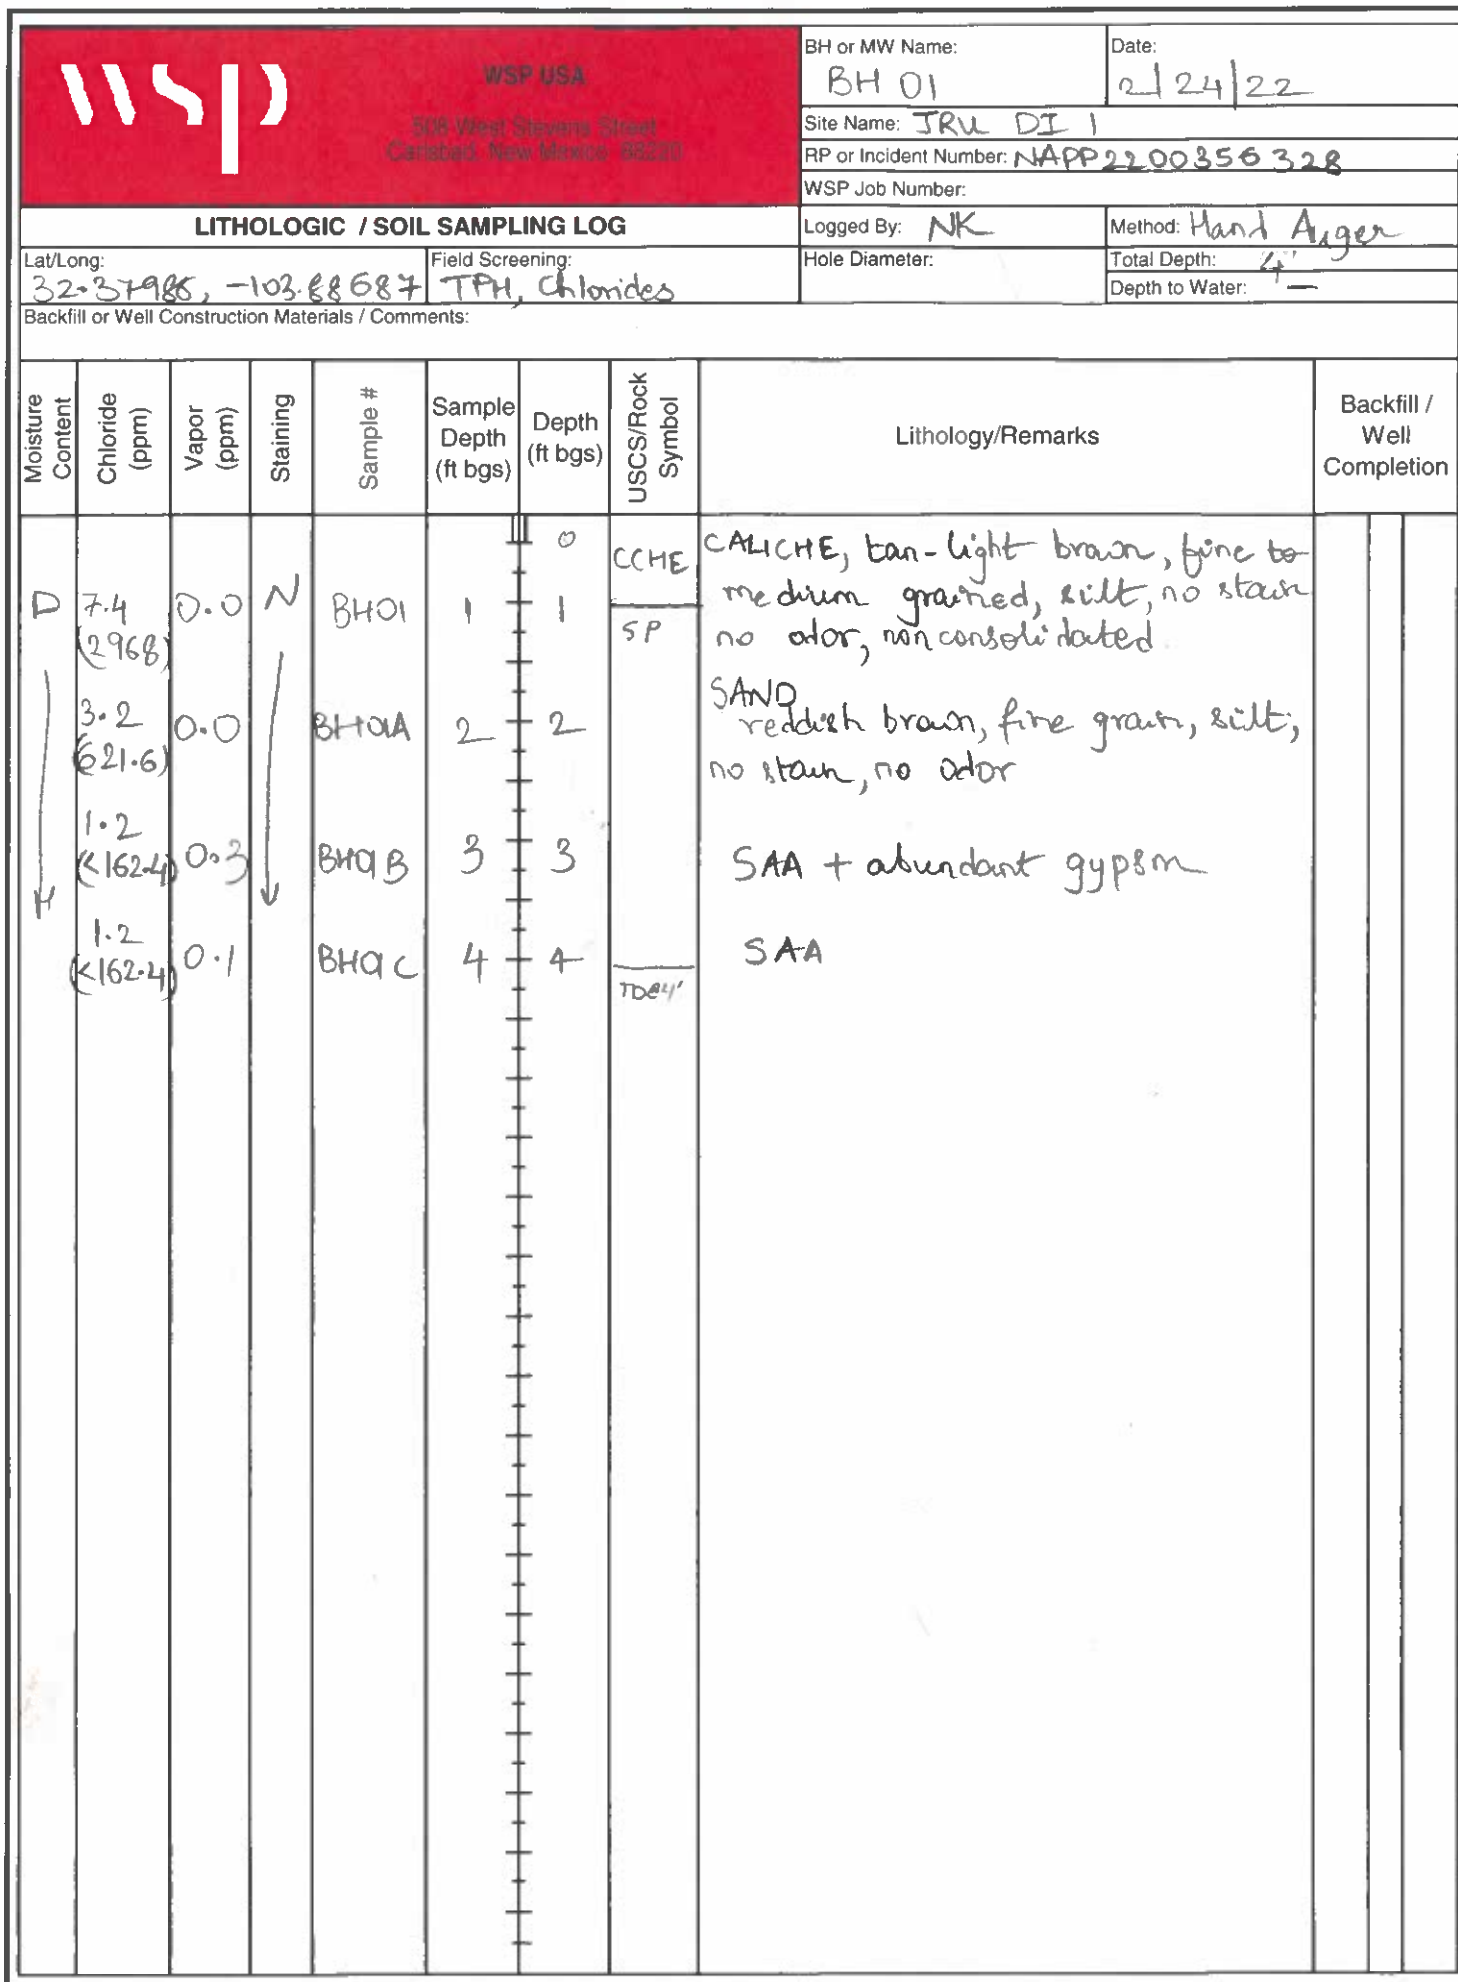 WSP
WSP USA
508 West Stevens Street
Carlsbad, New Mexico 88220
BH or MW Name: BH 01
Date: 2/24/22
Site Name: JRU DI 1
RP or Incident Number: NAPP2200356328
WSP Job Number:
LITHOLOGIC / SOIL SAMPLING LOG
Logged By: NK
Method: Hand Auger
Lat/Long: 32.37986, -103.88687
Field Screening: TPH, Chlorides
Hole Diameter:
Total Depth: 4'
Depth to Water: —
Backfill or Well Construction Materials / Comments:
Moisture Content
Chloride (ppm)
Vapor (ppm)
Staining
Sample #
Sample Depth (ft bgs)
Depth (ft bgs)
USCS/Rock Symbol
Lithology/Remarks
Backfill / Well Completion
0 CCHE CALICHE, tan-light brown, fine to
D 7.4 0.0 N BH01 1 1 medium grained, silt, no stain
(2968) SP no odor, non consolidated
3.2 0.0 BH01A 2 2 SAND
(621.6) reddish brown, fine grain, silt,
no stain, no odor
1.2
(<162.4) 0.3 BH01B 3 3 SAA + abundant gypsm
M
1.2 0.1 BH01C 4 4 SAA
(<162.4) TD@4'